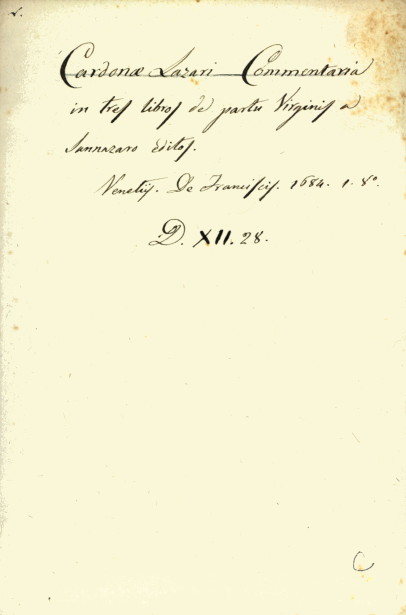 L.
Cardonæ Lazari Commentaria
in tres libros de partu Virginis a
Sannazaro editos.
Venetiis. De Franciscis. 1684. 1. 8º.
D. XII. 28.
C